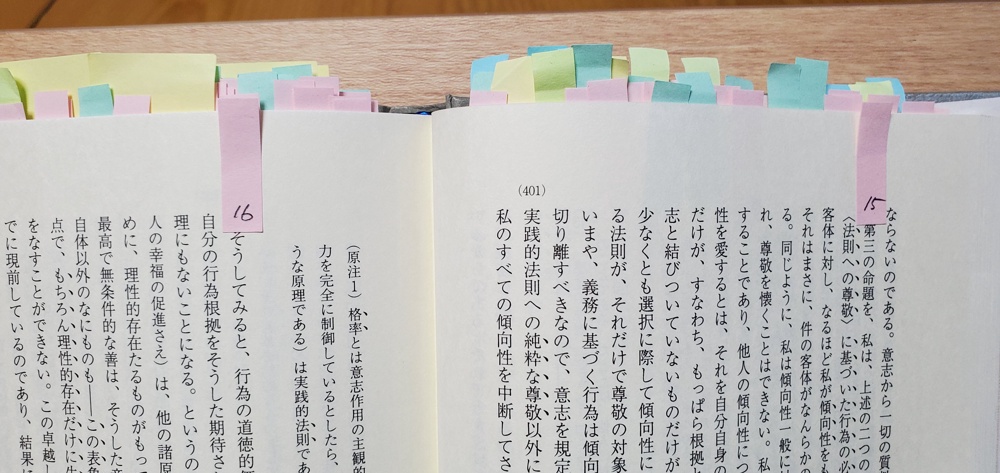 15
ならないのである。意志から一切の質
第三の命題を、私は、上述の二つの
〈法則への尊敬〉に基づいた行為の必
客体に対し、なるほど私が傾向性を
それはまさに、件の客体がなんらかの
る。同じように、私は傾向性一般に
れ、尊敬を懐くことはできない。私
することであり、他人の傾向性につ
性を愛するとは、それを自分自身の
だけが、すなわち、もっぱら根拠と
志と結びついていないものだけが
少なくとも選択に際して傾向性に
る法則が、それだけで尊敬の対象
いまや、義務に基づく行為は傾向
切り離すべきなので、意志を規定
(401)
実践的法則への純粋な尊敬以外に
私のすべての傾向性を中断してさ
（原注1）格率とは意志作用の主観的
力を完全に制御しているとしたら、
うな原理である）は実践的法則であ
16
そうしてみると、行為の道徳的
自分の行為根拠をそうした期待さ
理にもないことになる。というの
人の幸福の促進さえ）は、他の諸原
めに、理性的存在たるものがもっ
最高で無条件的な善は、そうした
自体以外のなにものも――この表象
点で、もちろん理性的存在だけに
をなすことができない。この卓越し
でに現前しているのであり、結果